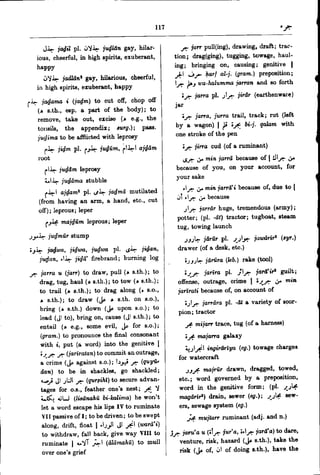 117
جر
جذل jaḏil pl. جذلان juḏlān gay, hilar-
ious, cheerful, in high spirits, exuberant,
happy
جذلان jaḏlān² gay, hilarious, cheerful,
in high spirits, exuberant, happy
جذم jaḏama i (jaḏm) to cut off, chop off
(ه s.th., esp. a part of the body); to
remove, take out, excise (ه e.g., the
tonsils, the appendix; surg.); pass.
juḏima to be afflicted with leprosy
جذم jiḏm pl. جذوم juḏūm, اجذام ajḏām
root
جذام juḏām leprosy
جذامة juḏāma stubble
اجذم ajḏam² pl. جذمى jaḏmā mutilated
(from having an arm, a hand, etc., cut
off); leprous; leper
مجذوم majḏūm leprous; leper
جذمور juḏmūr stump
جذوة jaḏwa, jiḏwa, juḏwa pl. جذى jiḏan,
juḏan, جذاء jiḏā' firebrand; burning log
جر jarra u (jarr) to draw, pull (ه s.th.); to
drag, tug, haul (ه s.th.); to tow (ه s.th.);
to trail (ه s.th.); to drag along (ه s.o.,
ه s.th.); to draw (على ه s.th. on s.o.),
bring (ه s.th.) down (على upon s.o.); to
lead (الى to), bring on, cause (الى s.th.); to
entail (ه e.g., some evil, على for s.o.);
(gram.) to pronounce the final consonant
with i, put (a word) into the genitive |
جر جريرة (jarīratan) to commit an outrage,
a crime (على against s.o.); جر قيودا (quyū-
dan) to be in shackles, go shackled;
جر النار الى قرصه (qurṣihī) to secure advan-
tages for o.s., feather one's nest; لا يجر
لسانه بكلمة (lisānahū bi-kalima) he won't
let a word escape his lips IV to ruminate
VII passive of I; to be driven; to be swept
along, drift, float | انجر الى ورائه (warā'ī)
to withdraw, fall back, give way VIII to
ruminate | اجتر آلامه (ālāmahū) to mull
over one's grief
جر jarr pull(ing), drawing, draft; trac-
tion; drag(ging), tugging, towage, haul-
ing; bringing on, causing; genitive |
حرف الجر ḥarf al-j. (gram.) preposition;
وهلم جرا wa-halumma jarran and so forth
جرة jarra pl. جرار jirār (earthenware)
jar
جرة jarra, jurra trail, track; rut (left
by a wagon) | بجرة قلم bi-j. qalam with
one stroke of the pen
جرة jirra cud (of a ruminant)
من جرى min jarrā because of | من جراك
because of you, on your account, for
your sake
من جراء min jarrā'i because of, due to |
من جراء ان because
جرار jarrār huge, tremendous (army);
potter; (pl. -āt) tractor; tugboat, steam
tug, towing launch
جارور jārūr pl. جوارير jawārīr² (syr.)
drawer (of a desk, etc.)
جاروره jārūra (leb.) rake (tool)
جريرة jarīra pl. جرائر jarā'ir² guilt;
offense, outrage, crime | من جريرة min
jarīrati because of, on account of
جرارة jarrāra pl. -āt a variety of scor-
pion; tractor
مجر mijarr trace, tug (of a harness)
مجرة majarra galaxy
انجرارية injirārīya (eg.) towage charges
for watercraft
مجرور majrūr drawn, dragged, towed,
etc.; word governed by a preposition,
word in the genitive form; (pl. مجارير
majārīr²) drain, sewer (eg.); مجارير sew-
ers, sewage system (eg.)
مجتر mujtarr ruminant (adj. and n.)
جرؤ jaru'a u (جرأة jur'a, جراءة jarā'a) to dare,
venture, risk, hazard (على s.th.), take the
risk (على of, ان of doing s.th.), have the